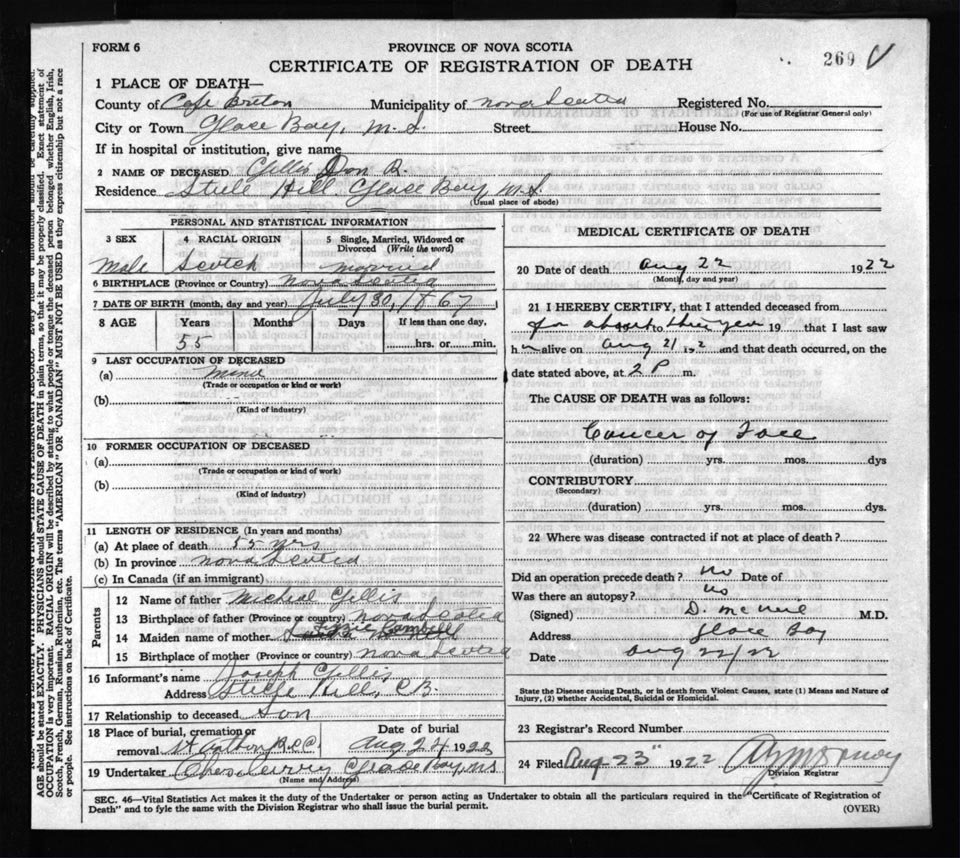 FORM 6
PROVINCE OF NOVA SCOTIA
269 V
CERTIFICATE OF REGISTRATION OF DEATH
1 PLACE OF DEATH—
County of Cape Breton Municipality of Nova Scotia Registered No.
(For use of Registrar General only)
City or Town Glace Bay, N.S. Street House No.
If in hospital or institution, give name
2 NAME OF DECEASED Gillis Dan R.
Residence Steele Hill Glace Bay N.S.
(Usual place of abode)
PERSONAL AND STATISTICAL INFORMATION
3 SEX 4 RACIAL ORIGIN 5 Single, Married, Widowed or Divorced (Write the word)
Male Scotch married
6 BIRTHPLACE (Province or Country) Nova Scotia
7 DATE OF BIRTH (month, day and year) July 30, 1867
8 AGE Years Months Days If less than one day,
55 hrs. or min.
9 LAST OCCUPATION OF DECEASED
(a) Miner
(Trade or occupation or kind or work)
(b)
(Kind of industry)
10 FORMER OCCUPATION OF DECEASED
(a)
(Trade or occupation or kind of work)
(b)
(Kind of industry)
11 LENGTH OF RESIDENCE (In years and months)
(a) At place of death 55 yrs
(b) In province Nova Scotia
(c) In Canada (if an immigrant)
Parents
12 Name of father Micheal Gillis
13 Birthplace of father (Province or country) Nova Scotia
14 Maiden name of mother
15 Birthplace of mother (Province or country) Nova Scotia
16 Informant's name Joseph Gillis
Address Steele Hill, C.B.
17 Relationship to deceased Son
18 Place of burial, cremation or removal Date of burial
R.C.C. Aug 24 1922
19 Undertaker Glace Bay, N.S.
(Name and Address)
MEDICAL CERTIFICATE OF DEATH
20 Date of death Aug 22 1922
(Month, day and year)
21 I HEREBY CERTIFY, that I attended deceased from
for about to this year 19 that I last saw
h m alive on Aug 21 192 and that death occurred, on the
date stated above, at 2 P m.
The CAUSE OF DEATH was as follows:
Cancer of Face
(duration) yrs. mos. dys
CONTRIBUTORY
(Secondary)
(duration) yrs. mos. dys.
22 Where was disease contracted if not at place of death?
Did an operation precede death? No Date of
Was there an autopsy? No
(Signed) D. McNeil M.D.
Address Glace Bay
Date Aug 22/22
State the Disease causing Death, or in death from Violent Causes, state (1) Means and Nature of Injury, (2) whether Accidental, Suicidal or Homicidal.
23 Registrar's Record Number
24 Filed Aug 23" 1922
Division Registrar
SEC. 46—Vital Statistics Act makes it the duty of the Undertaker or person acting as Undertaker to obtain all the particulars required in the "Certificate of Registration of
Death" and to fyle the same with the Division Registrar who shall issue the burial permit.
(OVER)
AGE should be stated EXACTLY. PHYSICIANS should STATE CAUSE OF DEATH in plain terms, so that it may be properly classified. Exact statement of
OCCUPATION is very important. RACIAL ORIGIN will be described by stating to what people or tongue the deceased person belonged whether English, Irish,
Scotch, French, German, Russian, Ruthenian, etc. The terms "AMERICAN" OR "CANADIAN" MUST NOT BE USED as they express citizenship but not a race
or people. See instructions on back of Certificate.